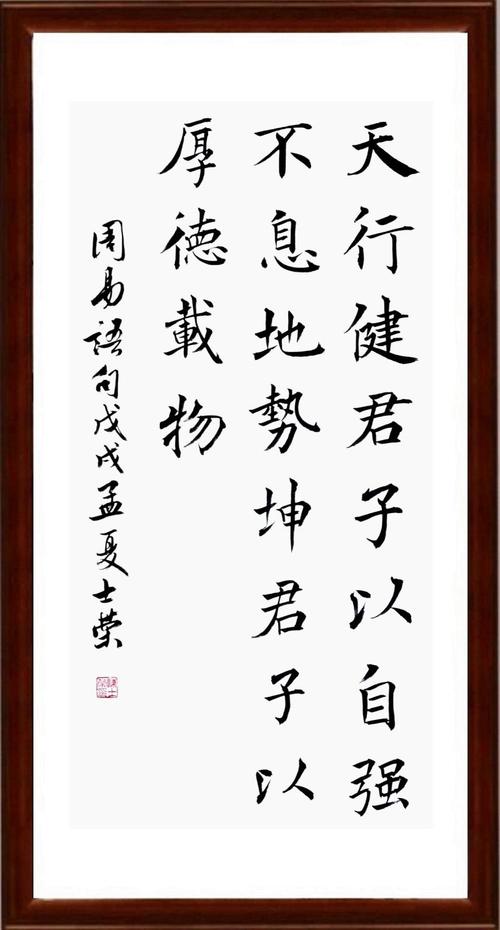 天行健君子以自强
不息地勢坤君子以
厚德載物
周易語句戊戌孟夏士榮